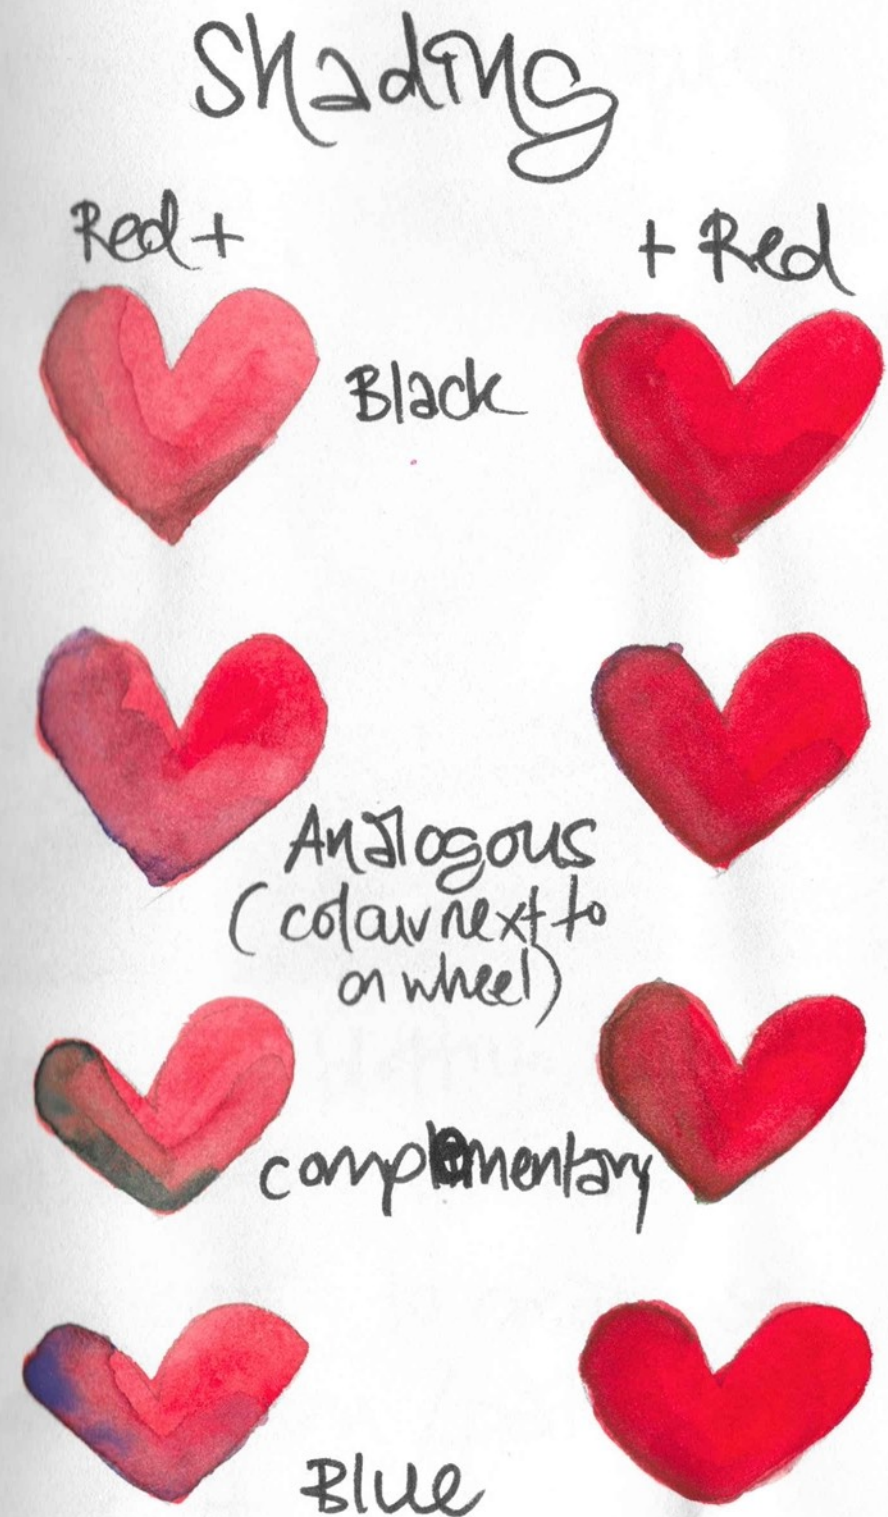 Shading
Red +
+ Red
Black
Analogous
(colour next to
on wheel)
complementary
Blue